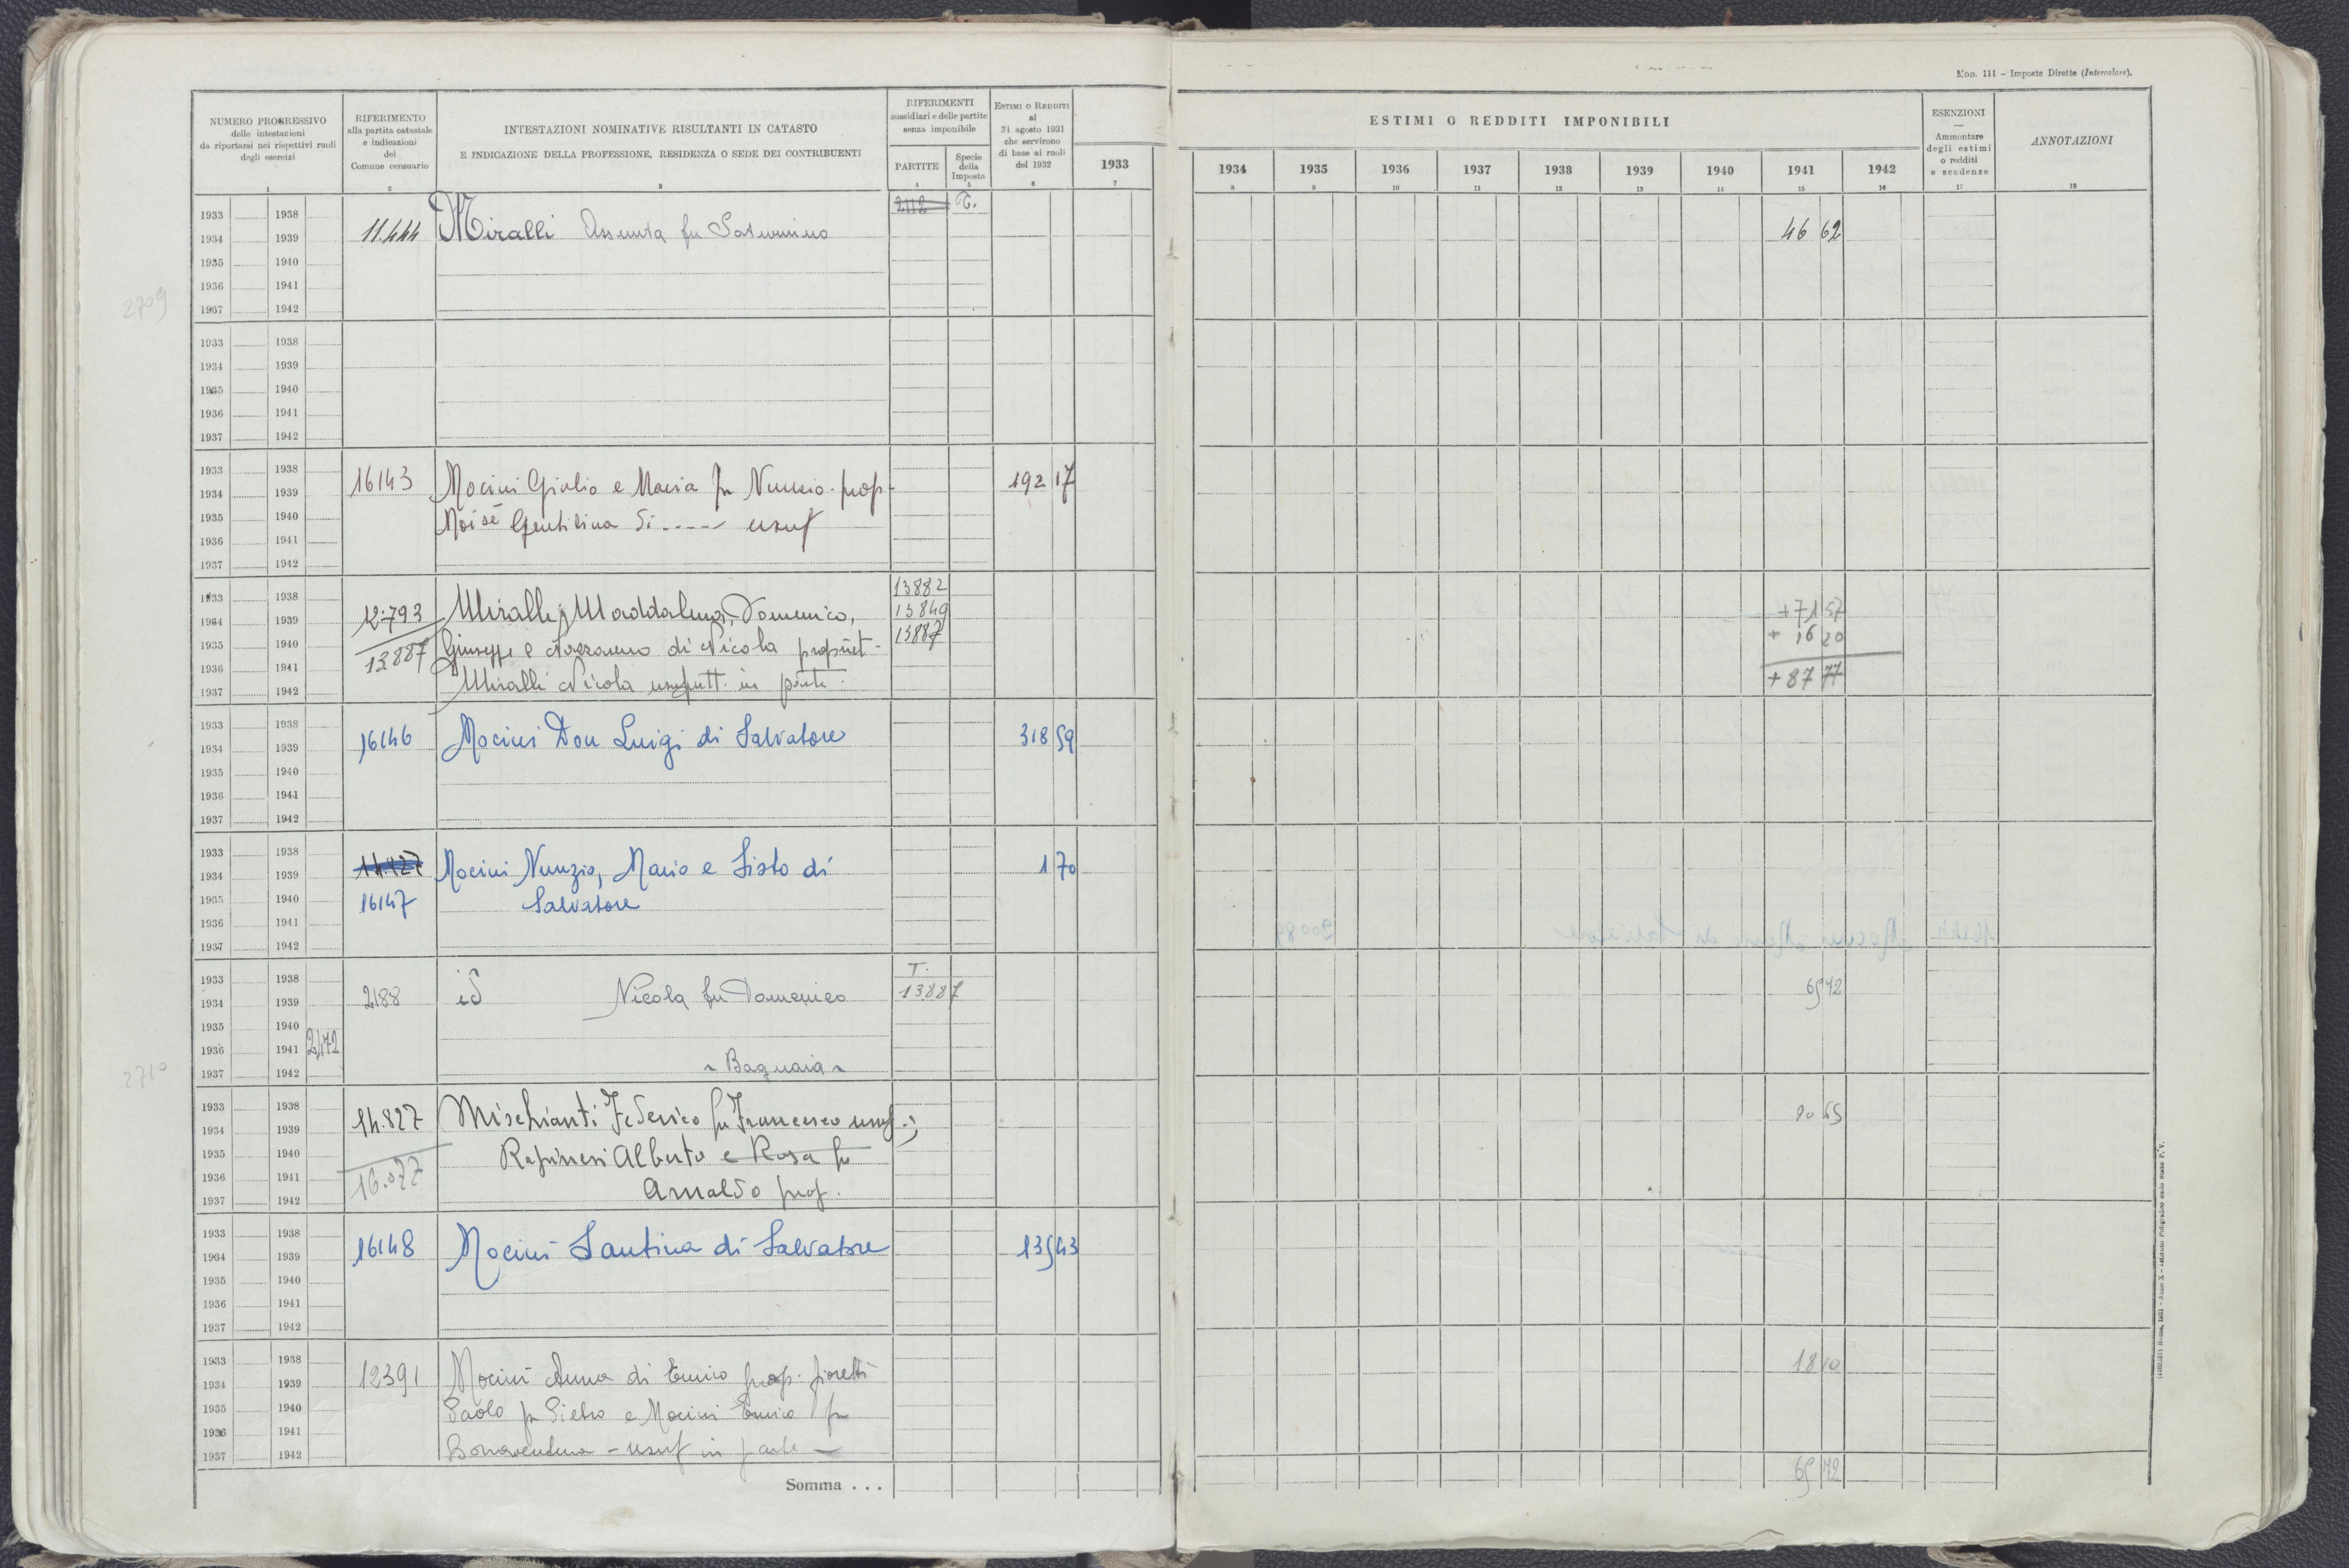 Mod. 111 - Imposte Dirette (Intercalare).
NUMERO PROGRESSIVO
delle intestazioni
da riportarsi nei rispettivi ruoli
degli esercizi
1
RIFERIMENTO
alla partita catastale
e indicazioni
del
Comune censuario
2
INTESTAZIONI NOMINATIVE RISULTANTI IN CATASTO
E INDICAZIONE DELLA PROFESSIONE, RESIDENZA O SEDE DEI CONTRIBUENTI
3
RIFERIMENTI
sussidiari e delle partite
senza imponibile
PARTITE
4
Specie
della
Imposta
5
ESTIMI O REDDITI
al
31 agosto 1931
che servirono
di base ai ruoli
del 1932
6
ESTIMI O REDDITI IMPONIBILI
1933 1934 1935 1936 1937 1938 1939 1940 1941 1942
7 8 9 10 11 12 13 14 15 16
ESENZIONI
—
Ammontare
degli estimi
o redditi
e scadenze
17
ANNOTAZIONI
18
2112 T.
1933 1938
1934 1939 11.444 Miralli Assunta fu Saturnino 46 62
1935 1940
1936 1941
2709
1937 1942
1933 1938
1934 1939
1935 1940
1936 1941
1937 1942
1933 1938
1934 1939 16143 Mocini Giulio e Maria fu Nunzio prop 192 17
1935 1940 Moisè Gentilina di ---- usuf
1936 1941
1937 1942
1933 1938 13882
1934 1939 12.793 Miralli Maddalena, Domenico, 13849 +71 57
1935 1940 Giuseppe e Nazzareno di Nicola propriet- 13887 + 16 20
1936 1941 13887
1937 1942 Miralli Nicola usufrutt. in parte +87 77
1933 1938
1934 1939 16146 Mocini Don Luigi di Salvatore 318 59
1935 1940
1936 1941
1937 1942
1933 1938
1934 1939 14.827 Mocini Nunzio, Mario e Sisto di 1 70
1935 1940 16147 Salvatore
1936 1941
1937 1942
1933 1938 T.
1934 1939 2188 id Nicola fu Domenico 13887 65 72
1935 1940
1936 1941 2172
1937 1942 Bagnaia
2710
1933 1938
1934 1939 14.827 Mischianti Federico fu Francesco usuf.; 20 65
1935 1940 Alberto e Rosa fu
1936 1941 16.077
1937 1942 Arnaldo prop.
1933 1938
1934 1939 16148 Mocini Santina di Salvatore 135 43
1935 1940
1936 1941
1937 1942
1933 1938
1934 1939 12391 Mocini Anna di Enrico prop. Fioretti 18 10
1935 1940 Paolo fu Pietro e Mocini Enrico fu
1936 1941
1937 1942 Bonaventura - usuf in parte -
Somma . . . 65 72